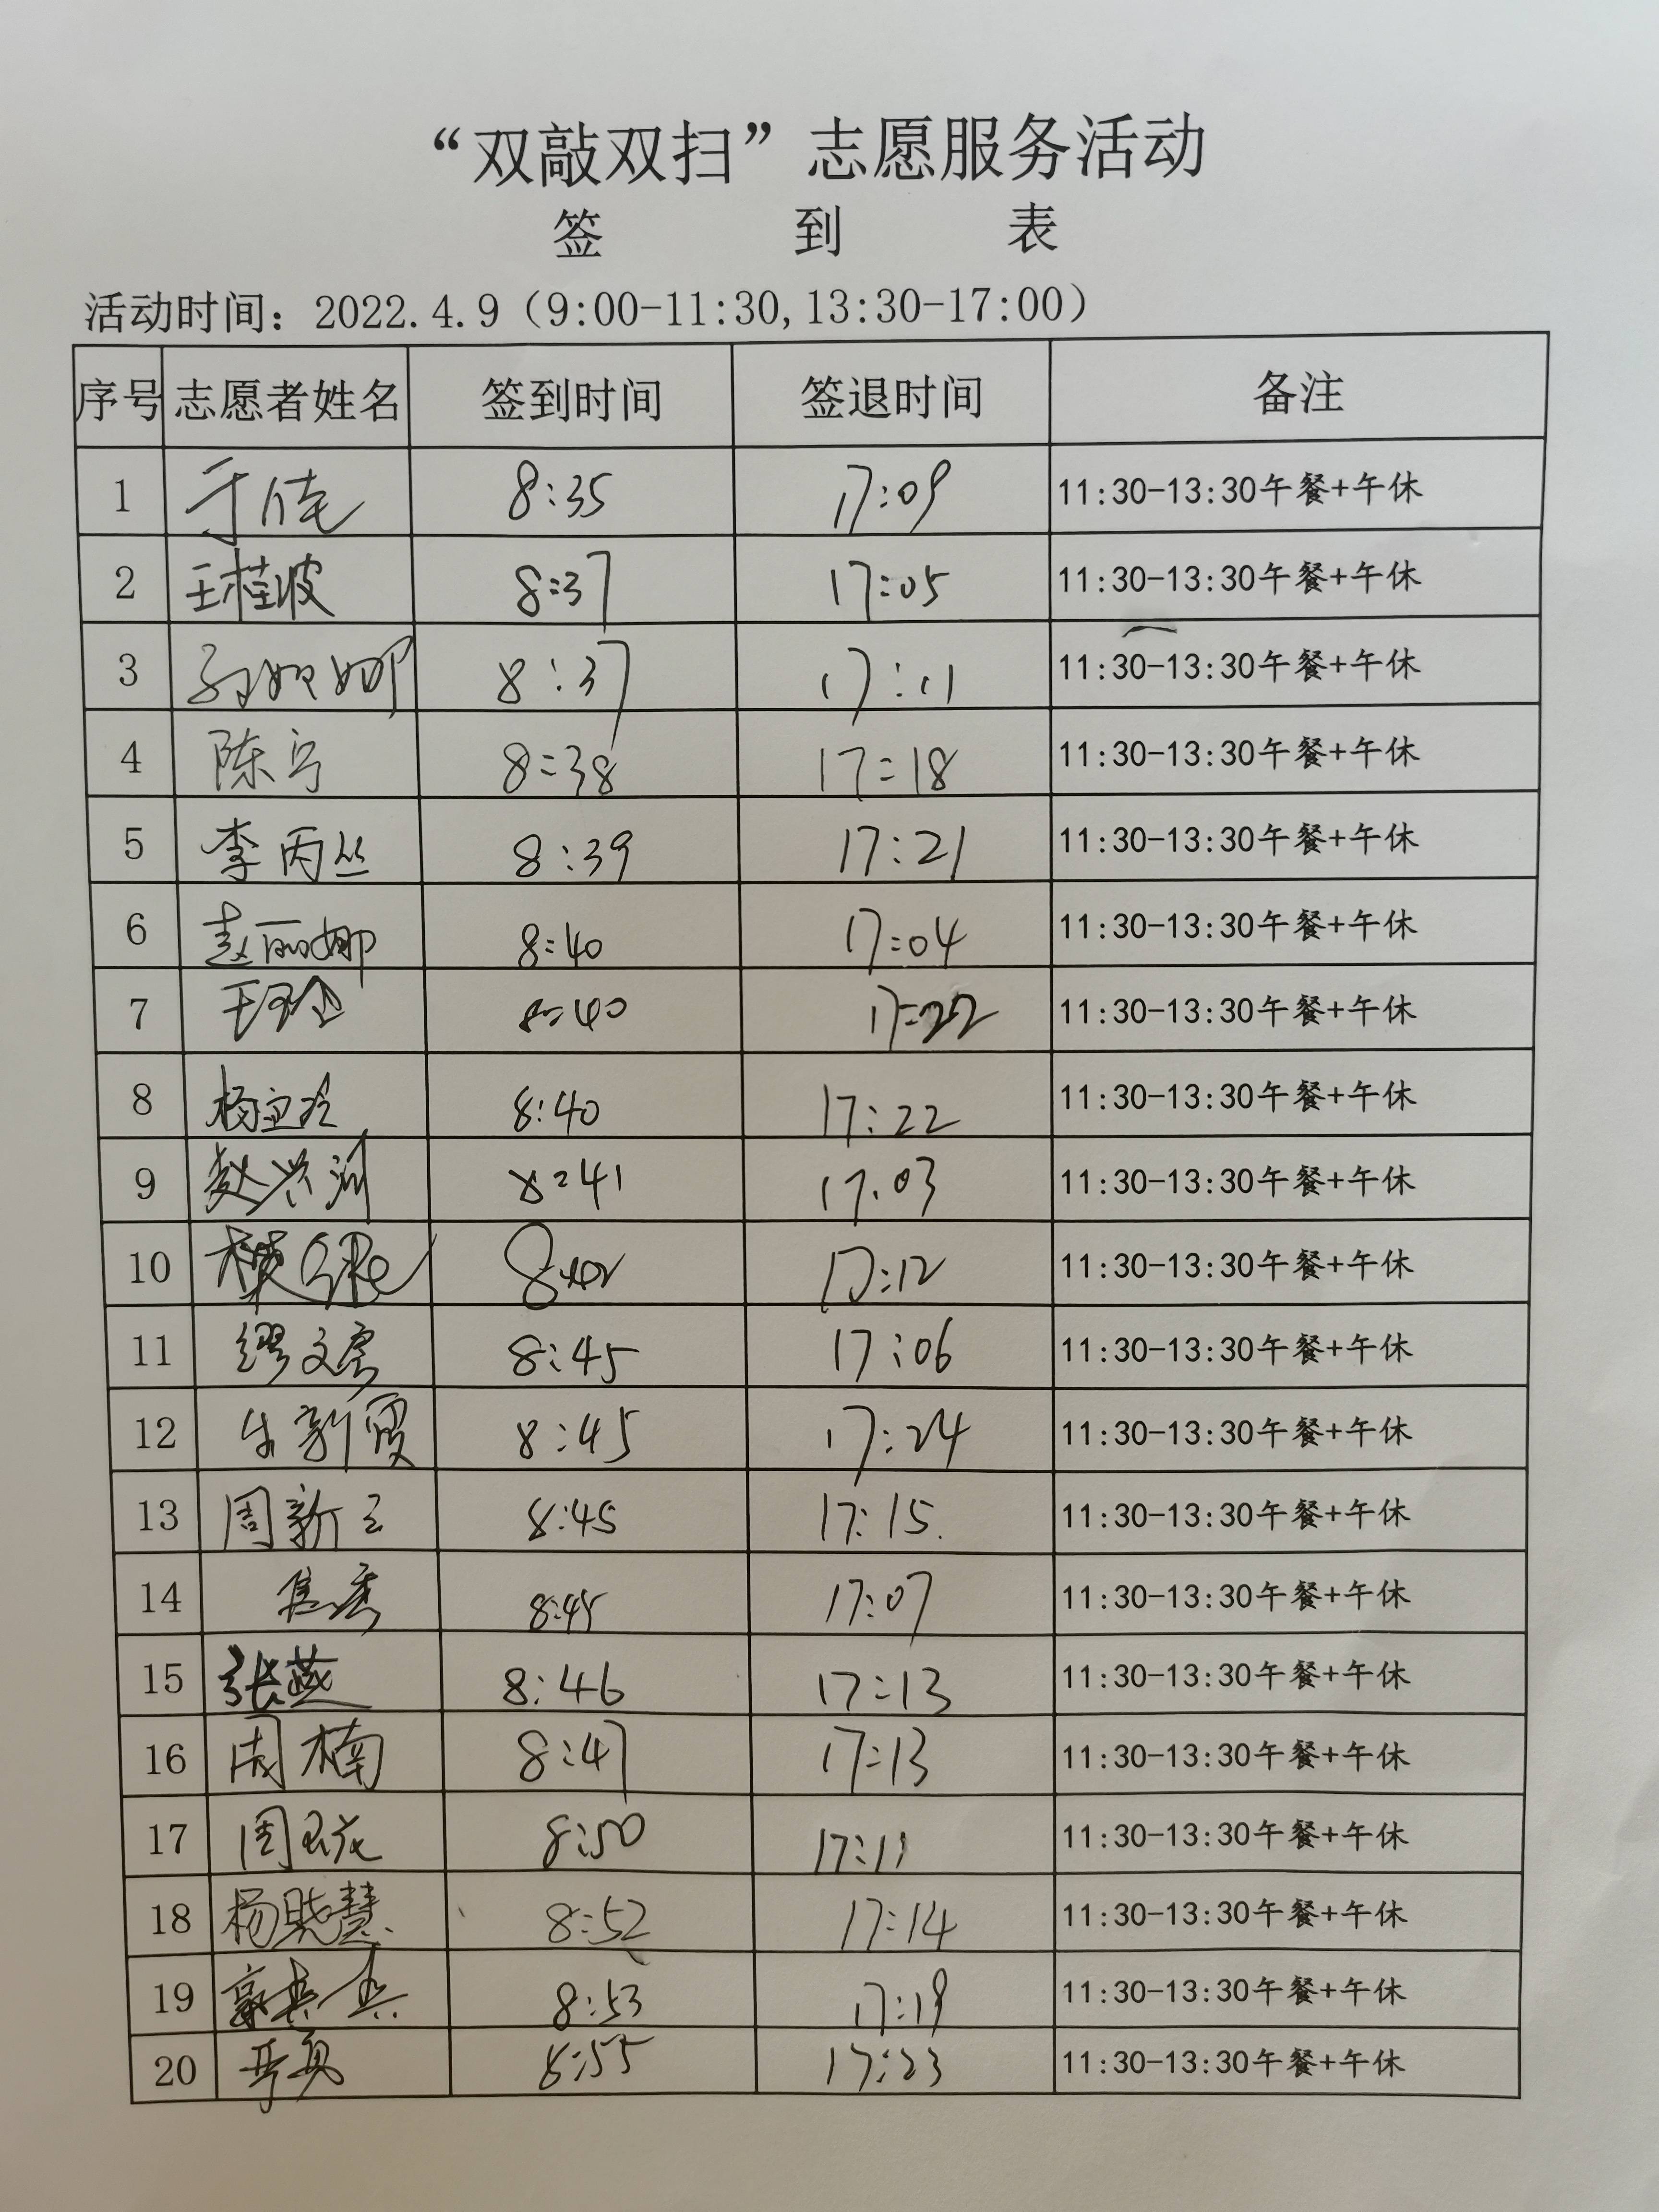 “双敲双扫”志愿服务活动
签 到 表
活动时间：2022.4.9（9:00-11:30,13:30-17:00）
序号 志愿者姓名 签到时间 签退时间 备注
1 于佳 8:35 17:09 11:30-13:30午餐+午休
2 王桂波 8:37 17:05 11:30-13:30午餐+午休
3 8:37 17:11 11:30-13:30午餐+午休
4 陈宁 8:38 17:18 11:30-13:30午餐+午休
5 李丙丛 8:39 17:21 11:30-13:30午餐+午休
6 赵丽娜 8:40 17:04 11:30-13:30午餐+午休
7 8:40 17:22 11:30-13:30午餐+午休
8 8:40 17:22 11:30-13:30午餐+午休
9 赵兴河 8:41 17:03 11:30-13:30午餐+午休
10 17:12 11:30-13:30午餐+午休
11 缪文 8:45 17:06 11:30-13:30午餐+午休
12 牛新霞 8:45 17:24 11:30-13:30午餐+午休
13 周新 8:45 17:15. 11:30-13:30午餐+午休
14 8:45 17:07 11:30-13:30午餐+午休
15 张燕 8:46 17:13 11:30-13:30午餐+午休
16 周楠 8:47 17:13 11:30-13:30午餐+午休
17 周 8:50 17:11 11:30-13:30午餐+午休
18 杨晓慧 8:52 17:14 11:30-13:30午餐+午休
19 8:53 17:19 11:30-13:30午餐+午休
20 8:55 17:23 11:30-13:30午餐+午休